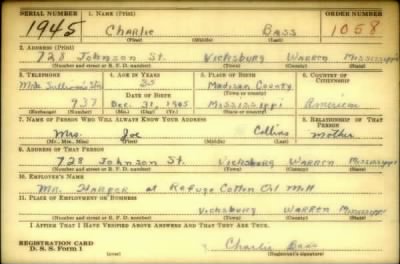 SERIAL NUMBER 1. NAME (Print) ORDER NUMBER
1945 Charlie Bass 1058
(First) (Middle) (Last)
2. ADDRESS (Print)
728 Johnson St. Vicksburg Warren Mississippi
(Number and street or R. F. D. number) (Town) (County) (State)
3. TELEPHONE 4. AGE IN YEARS 5. PLACE OF BIRTH 6. COUNTRY OF CITIZENSHIP
35 Madison County
DATE OF BIRTH
937 Dec. 31, 1905 Mississippi American
(Exchange) (Number) (Mo.) (Day) (Yr.) (State or country)
7. NAME OF PERSON WHO WILL ALWAYS KNOW YOUR ADDRESS 8. RELATIONSHIP OF THAT PERSON
Mrs. Joe Collins Mother
(Mr., Mrs., Miss) (First) (Middle) (Last)
9. ADDRESS OF THAT PERSON
728 Johnson St. Vicksburg Warren Mississippi
(Number and street or R. F. D. number) (Town) (County) (State)
10. EMPLOYER'S NAME
Mr. Harper at Refuge Cotton Oil Mill
11. PLACE OF EMPLOYMENT OR BUSINESS
Vicksburg Warren Mississippi
(Number and street or R. F. D. number) (Town) (County) (State)
I AFFIRM THAT I HAVE VERIFIED ABOVE ANSWERS AND THAT THEY ARE TRUE.
REGISTRATION CARD
D. S. S. Form 1 (over) Charlie Bass
(Registrant's signature)